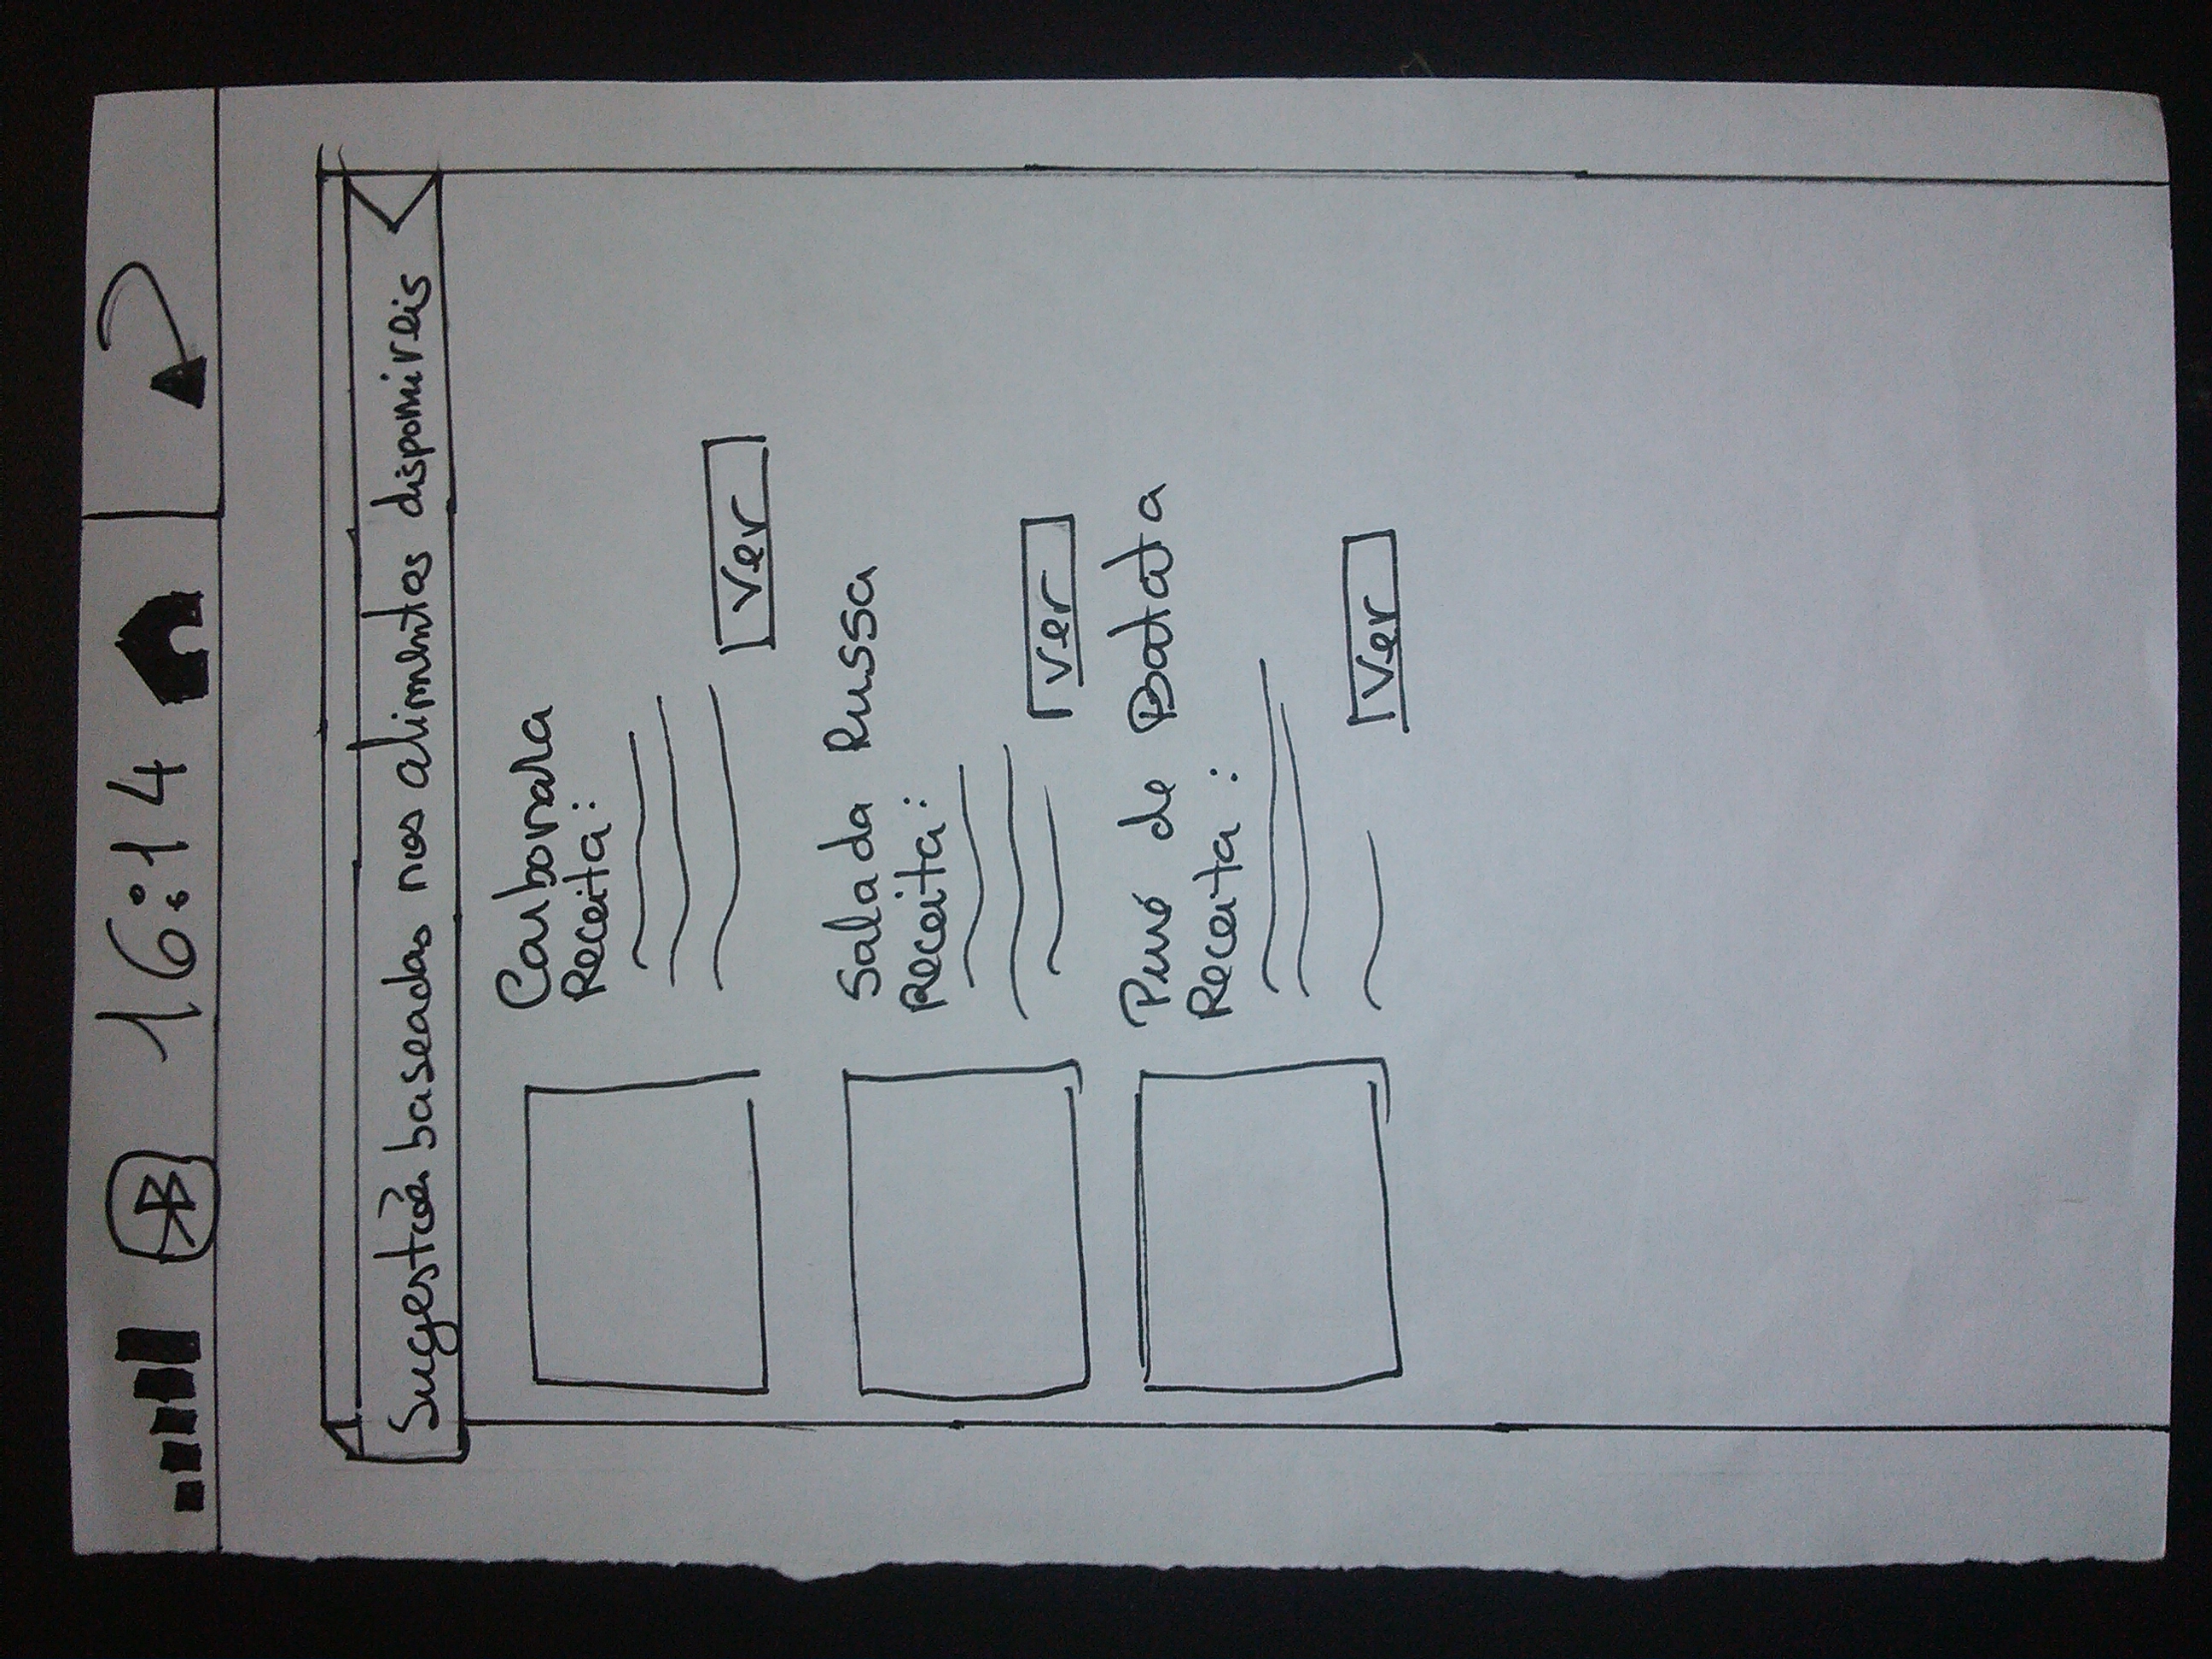 16:14
Sugestões baseadas nos alimentos disponiveis
Carbonara
Receita:
Ver
Salada Russa
Receita:
Ver
Puré de Batata
Receita:
Ver